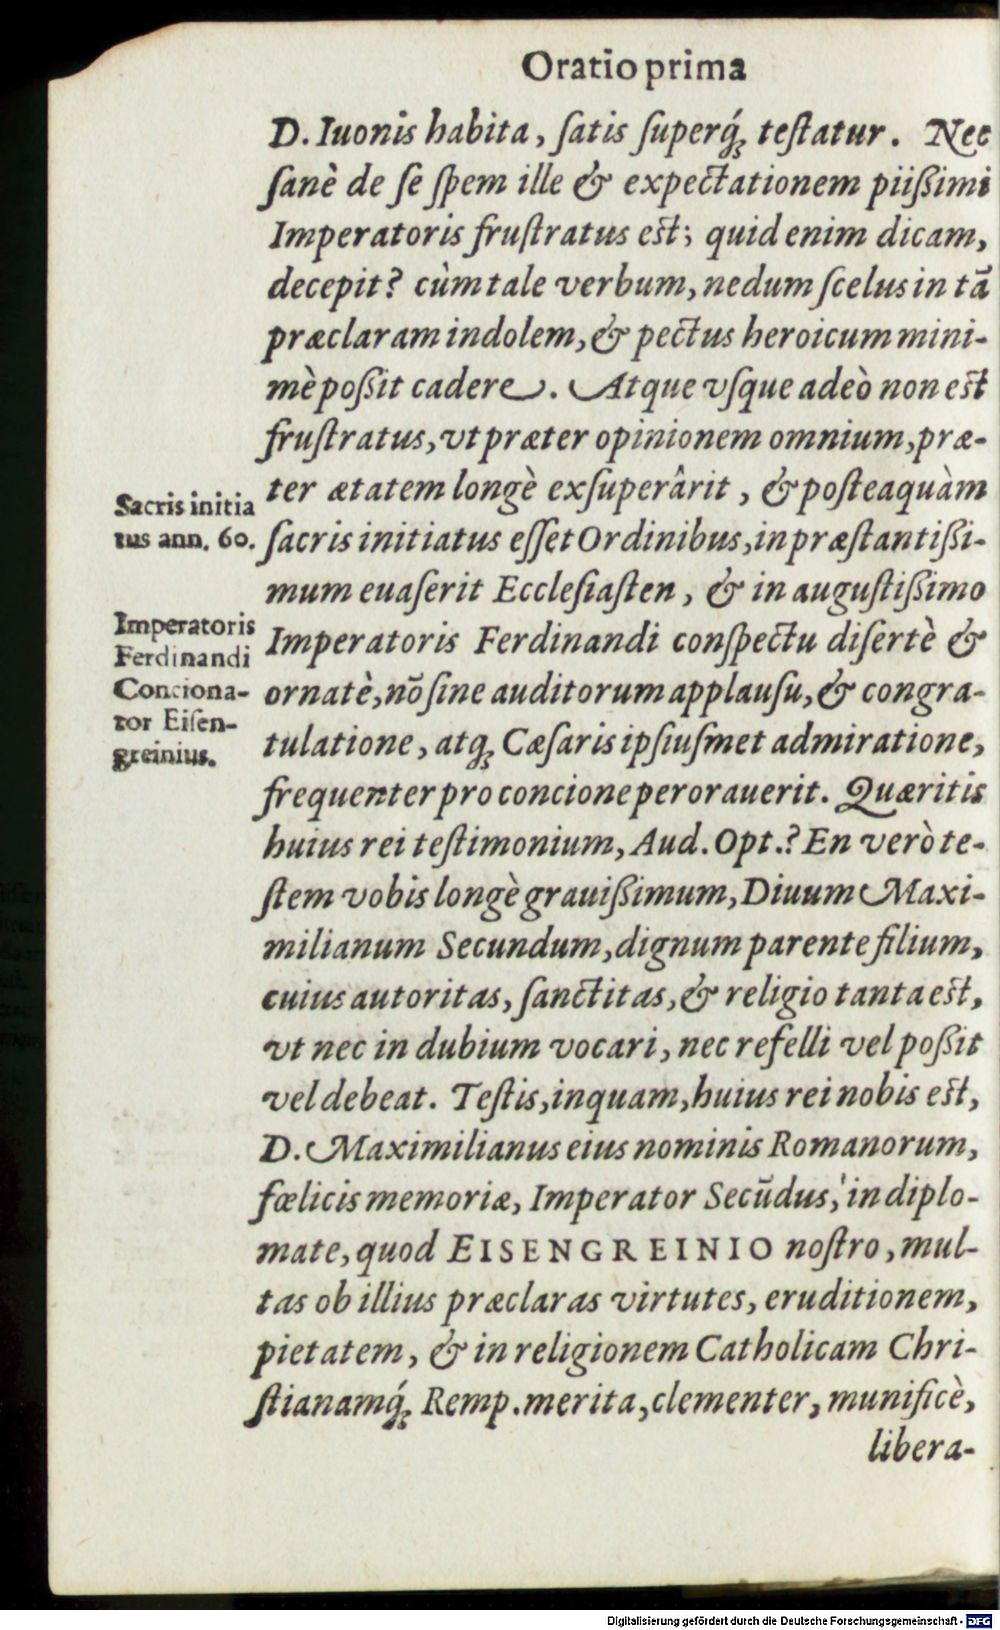 Oratio prima
D. Iuonis habita, ſatis ſuperq́; teſtatur. Nec
ſanè de ſe ſpem ille & expectationem piißimi
Imperatoris fruſtratus eſt; quid enim dicam,
decepit? cùm tale verbum, nedum ſcelus in tā
præclaram indolem, & pectus heroicum mini-
mè poßit cadere. Atque vſque adeò non eſt
fruſtratus, vt præter opinionem omnium, præ-
ter ætatem longè exſuperârit, & poſteaquàm
ſacris initiatus eſſet Ordinibus, in præſtantißi-
mum euaſerit Eccleſiaſten, & in auguſtißimo
Imperatoris Ferdinandi conſpectu diſertè &
ornatè, nō ſine auditorum applauſu, & congra-
tulatione, atq; Cæſaris ipſiuſmet admiratione,
frequenter pro concione perorauerit. Quæritis
huius rei teſtimonium, Aud. Opt.? En verò te-
ſtem vobis longè grauißimum, Diuum Maxi-
milianum Secundum, dignum parente filium,
cuius autoritas, ſanctitas, & religio tanta eſt,
vt nec in dubium vocari, nec refelli vel poßit
vel debeat. Teſtis, inquam, huius rei nobis eſt,
D. Maximilianus eius nominis Romanorum,
fœlicis memoriæ, Imperator Secūdus, in diplo-
mate, quod EISENGREINIO noſtro, mul-
tas ob illius præclaras virtutes, eruditionem,
pietatem, & in religionem Catholicam Chri-
ſtianamq́; Remp. merita, clementer, munificè,
libera-
Sacris initia
tus ann. 60.
Imperatoris
Ferdinandi
Conciona-
tor Eiſen-
greinius.
Digitalisierung gefördert durch die Deutsche Forschungsgemeinschaft - DFG